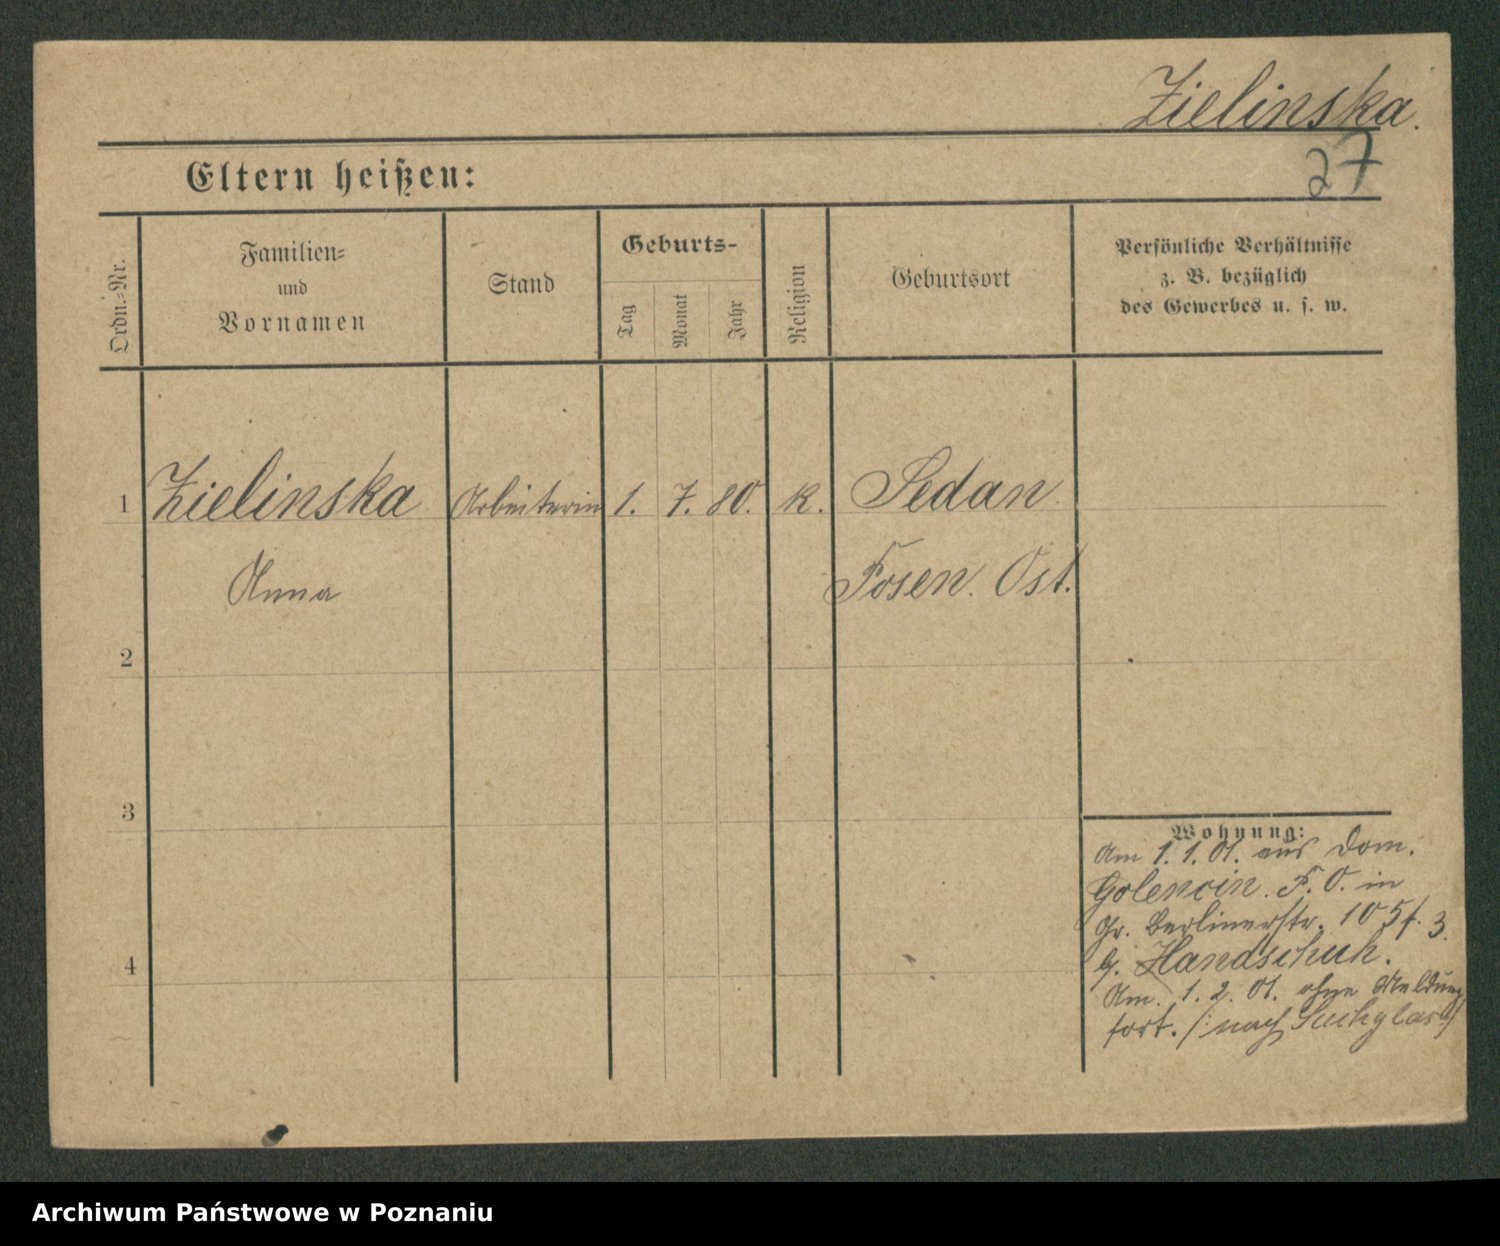 Zielinska.
Eltern heißen:
27
Ordn.-Nr.
Familien-
und
Vornamen
Stand
Geburts-
Tag
Monat
Jahr
Religion
Geburtsort
Persönliche Verhältnisse
z. B. bezüglich
des Gewerbes u. s. w.
1 Zielinska Arbeiterin 1. 7. 80. K. Sedan
Anna Posen. Ost.
2
3
Wohnung:
Am 1. 1. 01. aus Dom.
Golencin. P. O. in
Gr. Berlinerstr. 105f. 3.
b. Handschuh.
4
Am. 1. 2. 01. ohne Meldung
fort. /: nach
Archiwum Państwowe w Poznaniu